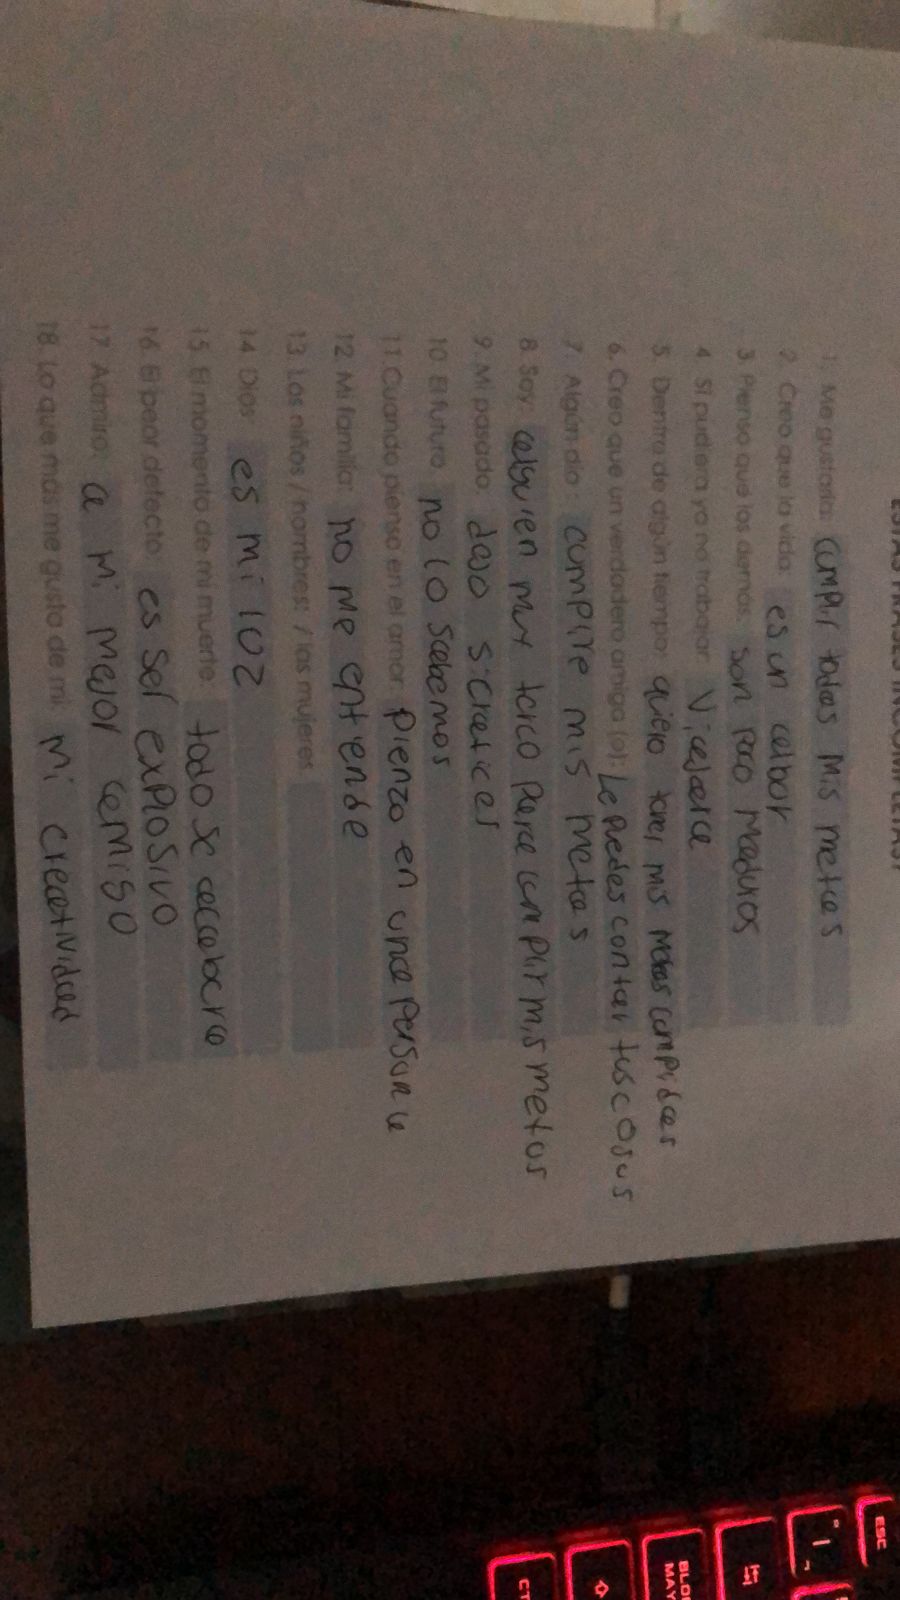 ESTAS FRASES INCOMPLETAS?
1. Me gustaría: cumplir todas mis metas
2. Creo que la vida: es un calbor
3 Pienso que los demas: son poco maduros
4. Sí pudiera yo no trabajar: Vicelarce
5. Dentro de algún tiempo: quiero tener mis metas cumplidas
6. Creo que un verdadero amigo (a): Le puedes contar tus cosas
7. Algún día: cumplire mis metas
8. Soy: alguien muy terco para cumplir mis metas
9. Mi pasado: dejo sicatrices
10 El futuro no lo sabemos
11. Cuando pienso en el amor: pienzo en una persona
12. Mi familia: no me entiende
13. Los niños / hombres: / las mujeres:
14. Dios: es mi loz
15. El momento de mi muerte: todo se acabara
16. El peor defecto: es ser explosivo
17. Admiro: a mi mejor amigo
18. Lo que más me gusta de mí: Mi creatividad
ESC
BLOQ
MAY
CT